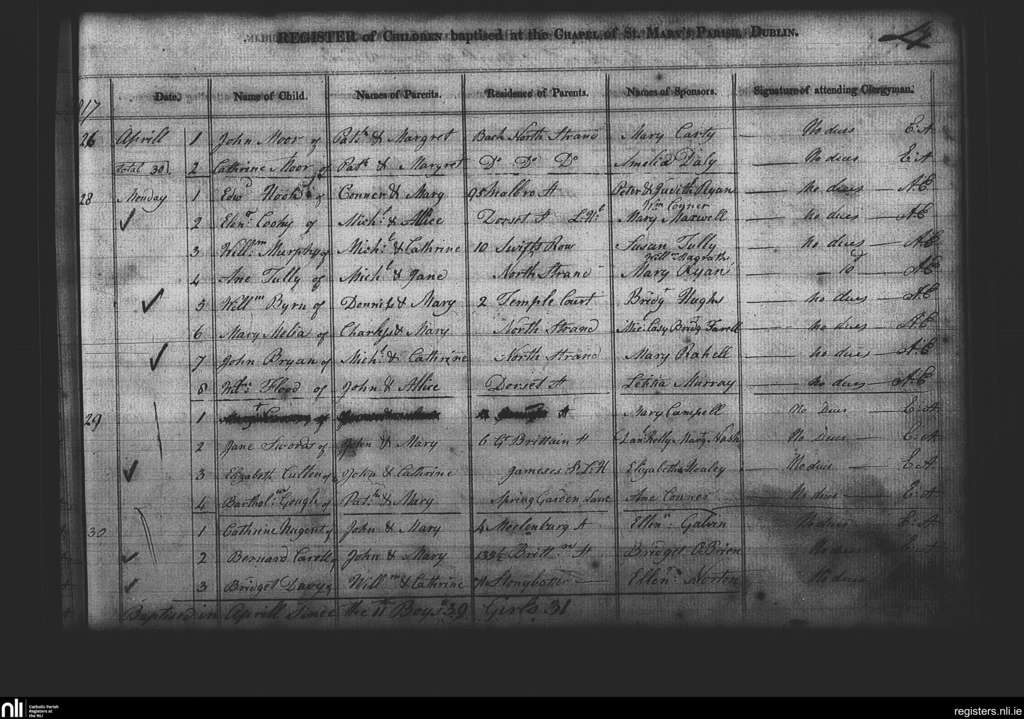 REGISTER of CHILDREN baptised at the CHAPEL of ST. MARY'S PARISH, DUBLIN.
4
17
Date. Name of Child. Names of Parents. Residence of Parents. Names of Sponsors. Signature of attending Clergyman.
26 Aprill 1 John Moor of Patk & Margret Back North Strand Mary Carty No dues E.A
total 30 2 Cathrine Moor of Patk & Margret Do Do Do Amelia Daly No dues E.A
28 Monday 1 Edwd of Conner & Mary 95 St Peter & Judith Ryan no dues A.C
2 Elenr Cooky of Michl & Allice Dorset St Wm Conner Mary Maxwell no dues A.C
3 Willm Murphy of Michl & Cathrine 10 Swifts Row Susan Tully no dues A.C
4 Ane Tully of Michl & Jane North Strand Willm Mary Ryan A.C
5 Willm Byrn of Dennis & Mary 2 Temple Court Bridgt Hughs no dues A.C
6 Mary Melia of Charles & Mary North Strand Mic Casy Bridgt Farrell no dues A.C
7 John Bryan of Michl & Cathrine North Strand Mary Rahell no dues A.C
8 Flood of John & Allice Dorset St Letitia Murray no dues A.C
29 1 Mary Campell No Dues E.A
2 Jane Swords of John & Mary 6 Gt Brittain St Kelly Mary Nash No Dues E.A
3 Elizabeth Cullen of John & Cathrine Jameses St Elizabeth Healey No dues E.A
4 Barthol Gough of Patk & Mary Spring Garden Lane Ane Conner No dues E.A
30 1 Cathrine Nugent of John & Mary 4 Meclenburg St Ellenr Galvin No dues E.A
2 Bernard Carell of John & Mary 133 Britt St Bridget O'Brien No dues
3 Bridget Davy Willm & Cathrine Stonybater Ellenr Norten No dues
Baptised in Aprill Since the 11 Boys 39 Girls 31
nli
Catholic Parish
Registers at
the NLI
registers.nli.ie